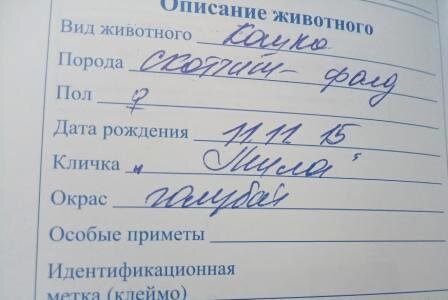 Описание животного
Вид животного Кошка
Порода скоттиш-фолд
Пол ♀
Дата рождения 11 11 15
Кличка „Жула"
Окрас голубой
Особые приметы
Идентификационная
метка (клеймо)